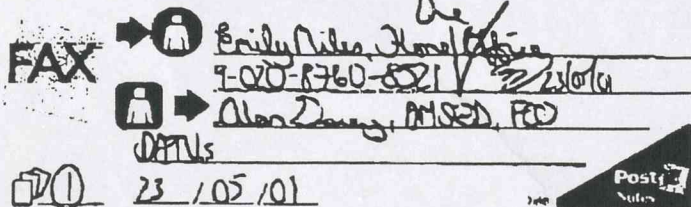 FAX
Emily Miles, Home Office
9-020-8760-8521 23/5/01
Alan Davey, AMSED, FCO
DATNs
1 23 / 05 / 01
Post
Notes